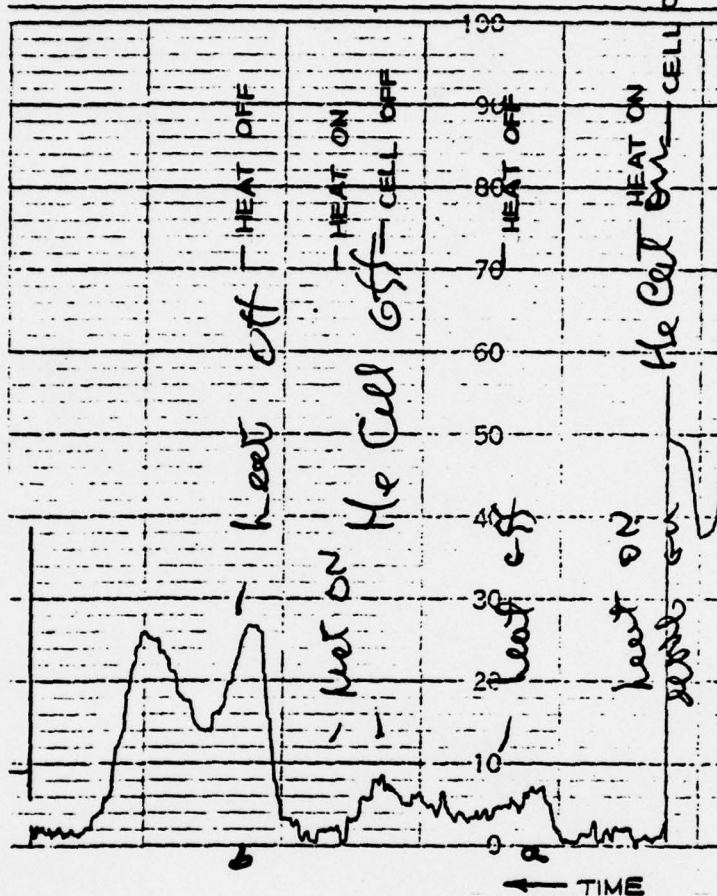 100
90
80
70
60
50
40
30
20
10
0
HEAT OFF
HEAT ON
CELL OFF
HEAT OFF
HEAT ON
CELL
heat off
heat on
He Cell Off
heat off
heat on
He Cell On
b
a
← TIME